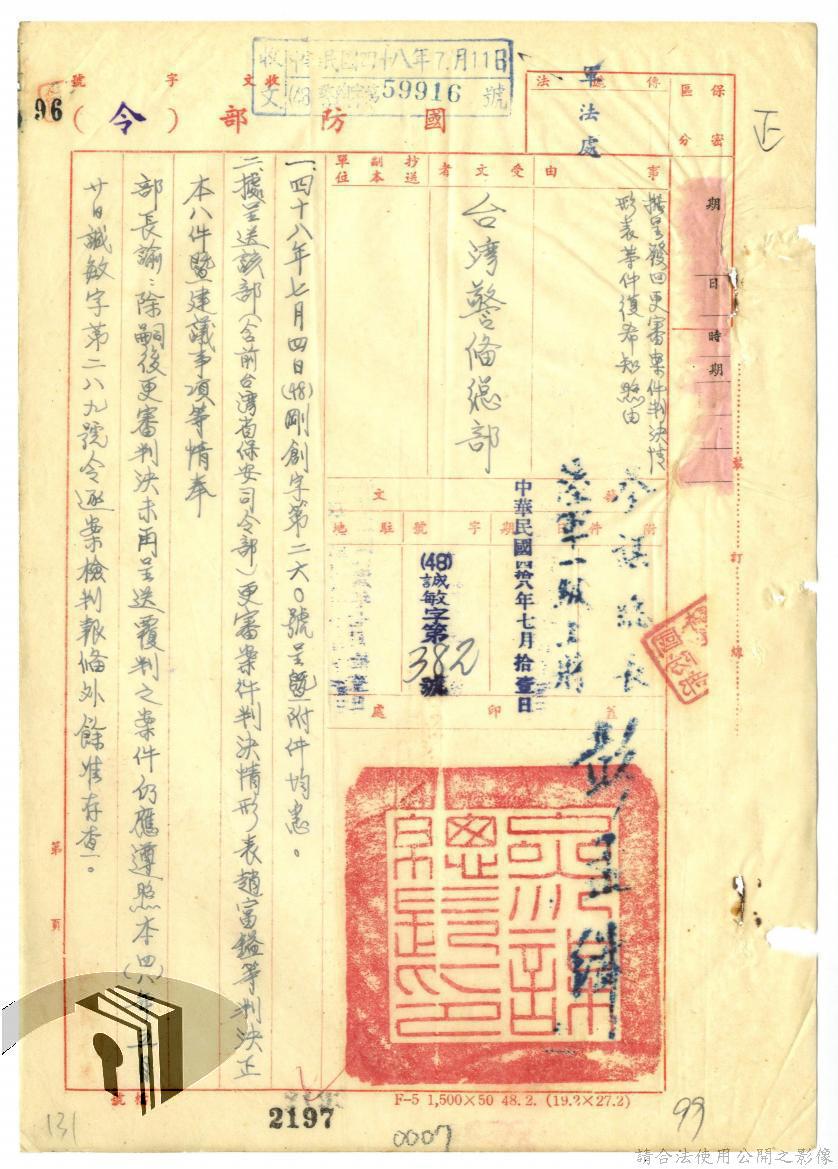 收文 中華民國四十八年7月11日
(48) 字第59916號
收文 字 號
96
國防部(令)
軍法處
傳遞法
保密區分
正
期 日 時 期
事由
據呈發回更審案件判決情
形表等件復希知照由
受文者
台灣警備總部
抄送副本單位
附件
日期
中華民國四拾八年七月拾壹日
字號
(48)誠敏字第382號
駐地
發文
參謀總長
陸軍一級上將
彭孟緝
蓋印處
一、四十八年七月四日(48)剛創字第二六〇號呈暨附件均悉。
二、據呈送該部(含前台灣省保安司令部)更審案件判決情形表趙富鎰等判決正
本八件暨建議事項等情奉
部長諭:除嗣後更審判決未再呈送覆判之案件仍應遵照本(四八)年五月
廿日誠敏字第二八九號令逐案檢判報備外餘准存查。
裝訂線
第 頁
檔號
2197
F-5 1,500×50 48.2. (19.2×27.2)
131
0007
99
請合法使用公開之影像